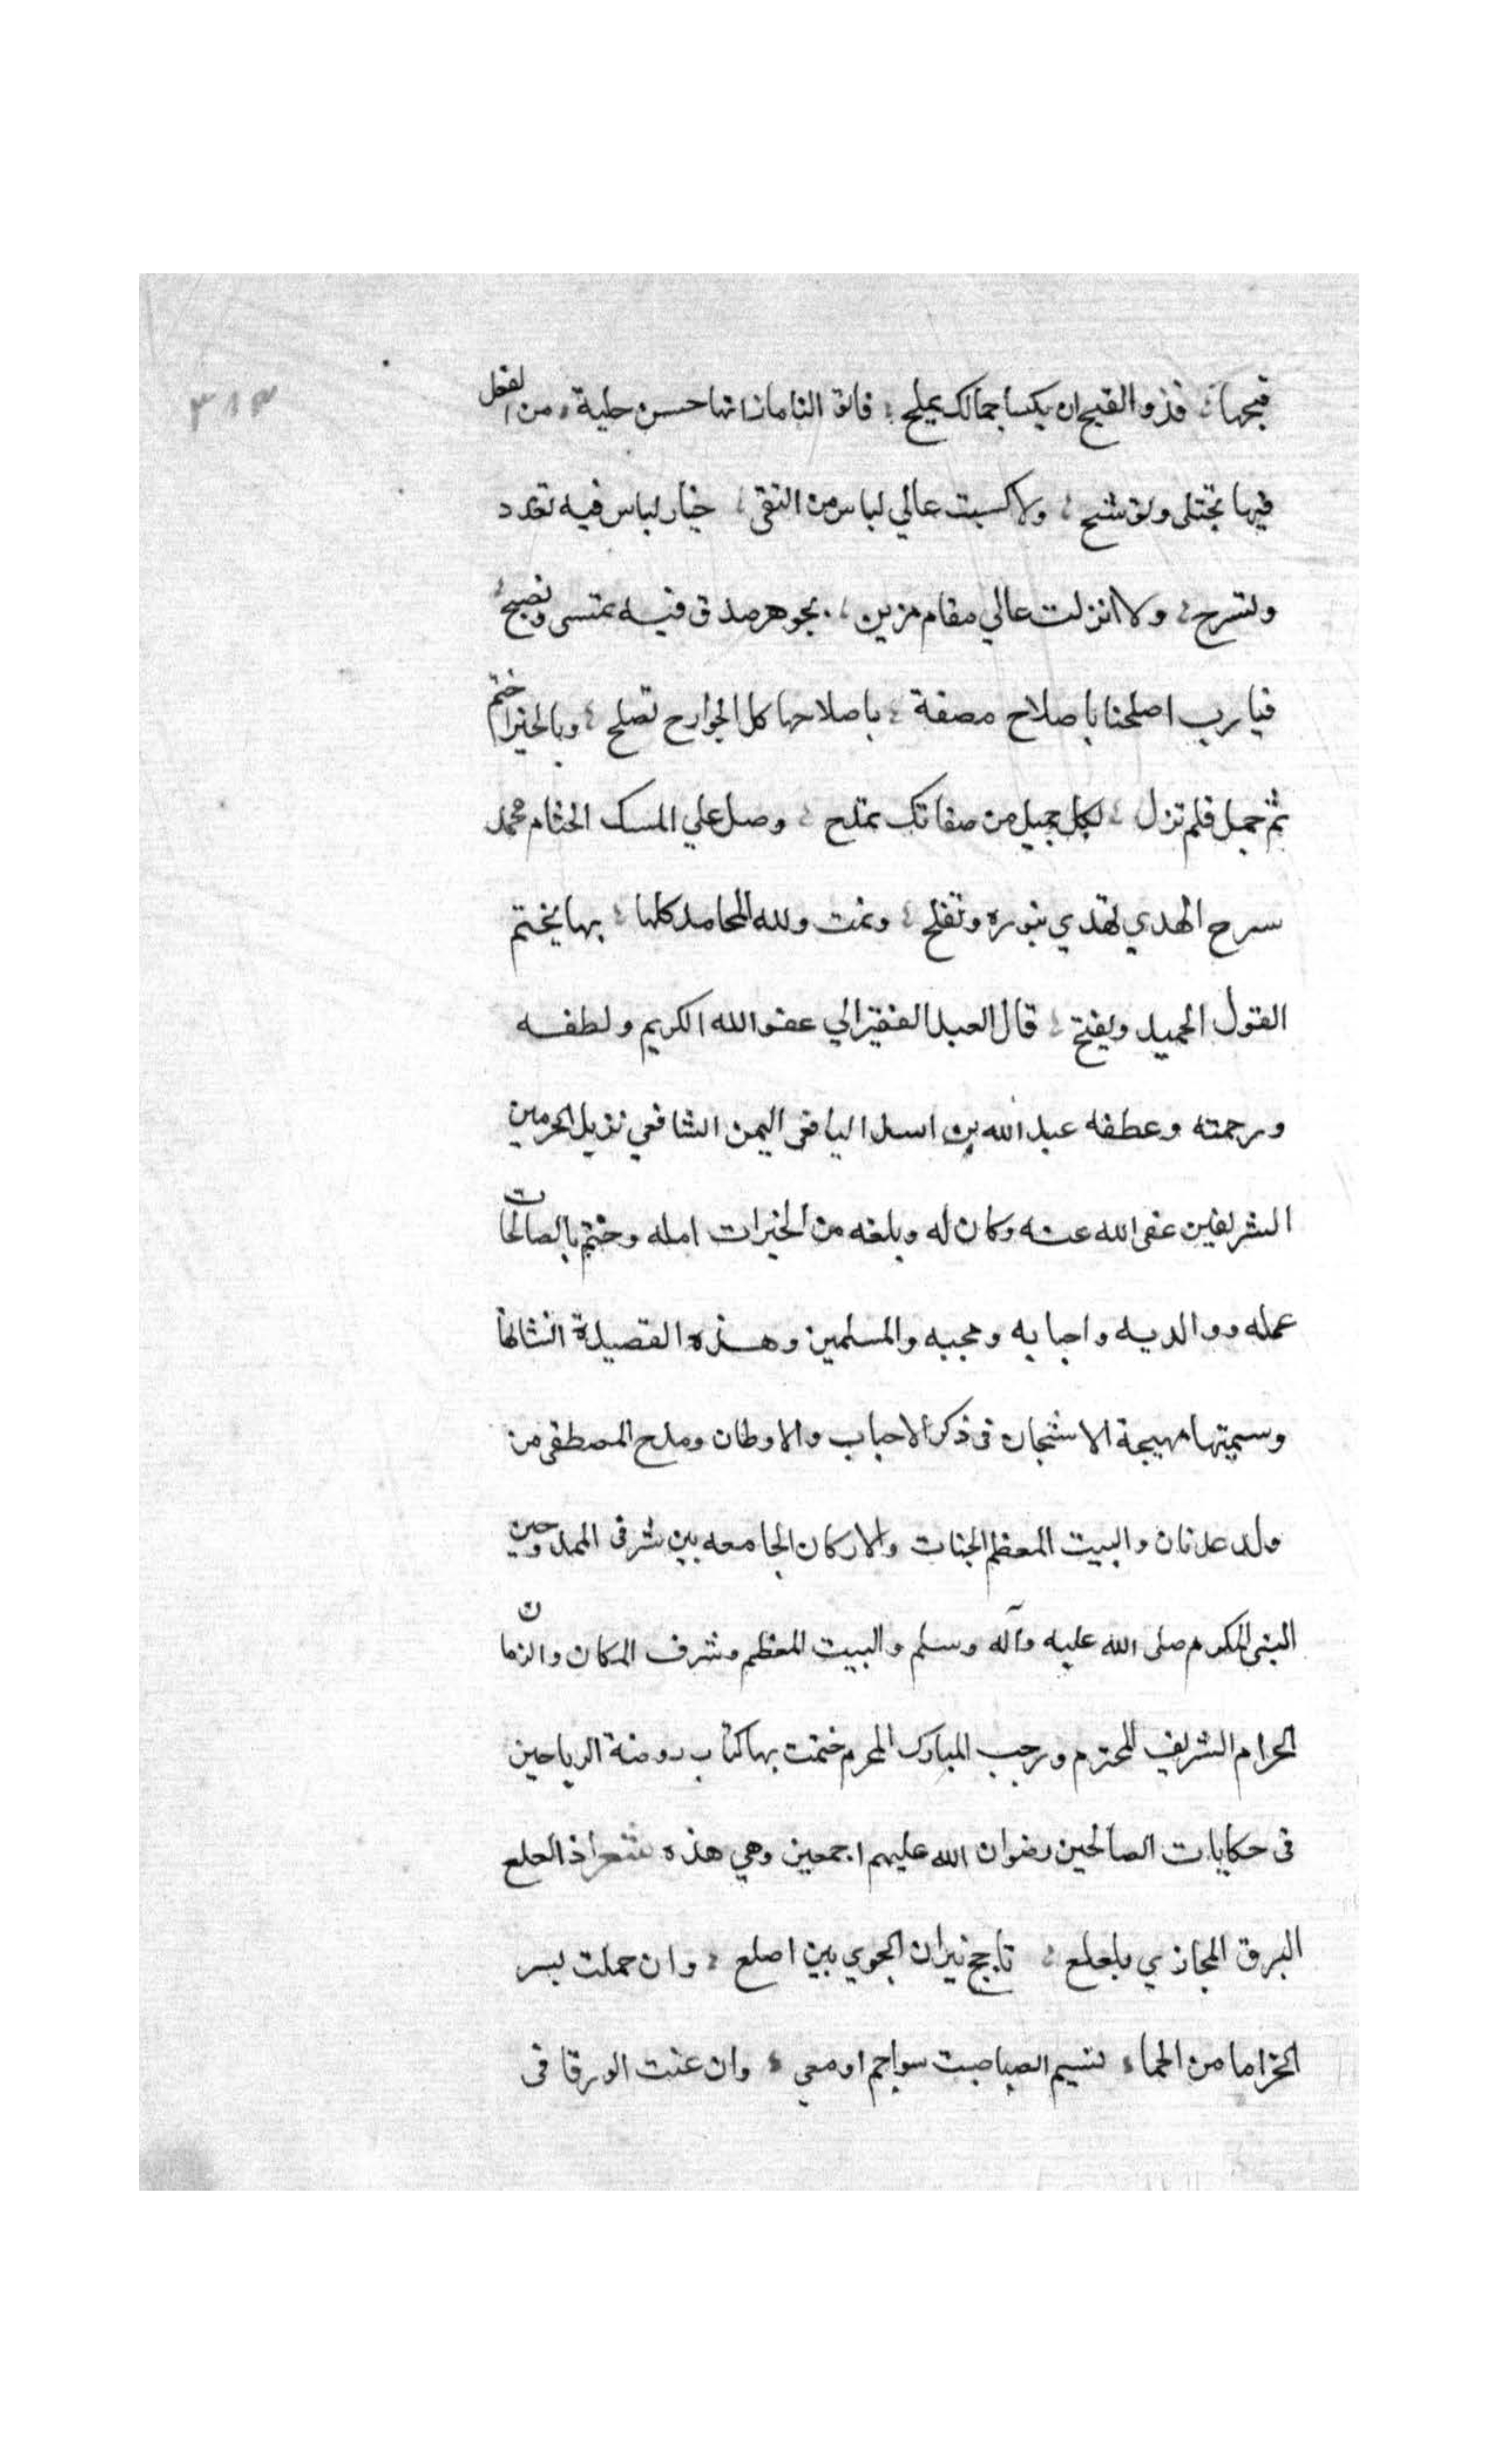 ٣١٣
قبحها فذو القبح ان يكسا جمالك يملح فانوالنا مازانها حسن حلية من الفعل
فيها تجتلى وتوشح ولا كسيت عالي لباس من التقى خيار لباس فيه تغدد
وتسرح ولا انزلت عالي مقام مزين بجوهر صدق فيه تمتسى وتصبح
فيا رب اصلحنا باصلاح مصغة باصلاحها كل الجوارح تصلح وبالخير اختم
ثم جميل فلم تزل لكل جميل من صفاتك تمتدح وصل علي المسك الختام محمد
سرح الهدي تهدي بنوره وتفلح وتمت ولله المحامد كلها بها يختم
القول الحميد ويفتح قال العبد الفقير الي عفو الله الكريم ولطفه
ورحمته وعطفه عبد الله بن اسد اليافعي اليمن الشافعي نزيل الحرمين
الشريفين عفى الله عنه وكان له وبلغه من الخيرات امله وختم بالصالحات
عمله ووالديه واحبابه ومحبيه والمسلمين وهذه القصيدة انشاتها
وسميتها مهيجة الاشجان فى ذكر الاحباب والاوطان ومدح المصطفى من
ولد عدنان والبيت المعظم الجنات والاركان الجامعه بين شرفى الممدوحين
النبى المكرم صلى الله عليه وآله وسلم والبيت المعظم وشرف المكان والزمان
الحرام الشريف المحترم ورجب المبارك المحرم ختمت بها كتاب روضة الرياحين
فى حكايات الصالحين رضوان الله عليهم اجمعين وهي هذه شعر اذا لعلع
البرق الحجازي بلعلع تاجج نيران الجوي بين اصلع وان حملت لبسر
الخزاما من الحماء نسيم الصبا صبت سواجم اومعي وان عنت الورقا فى